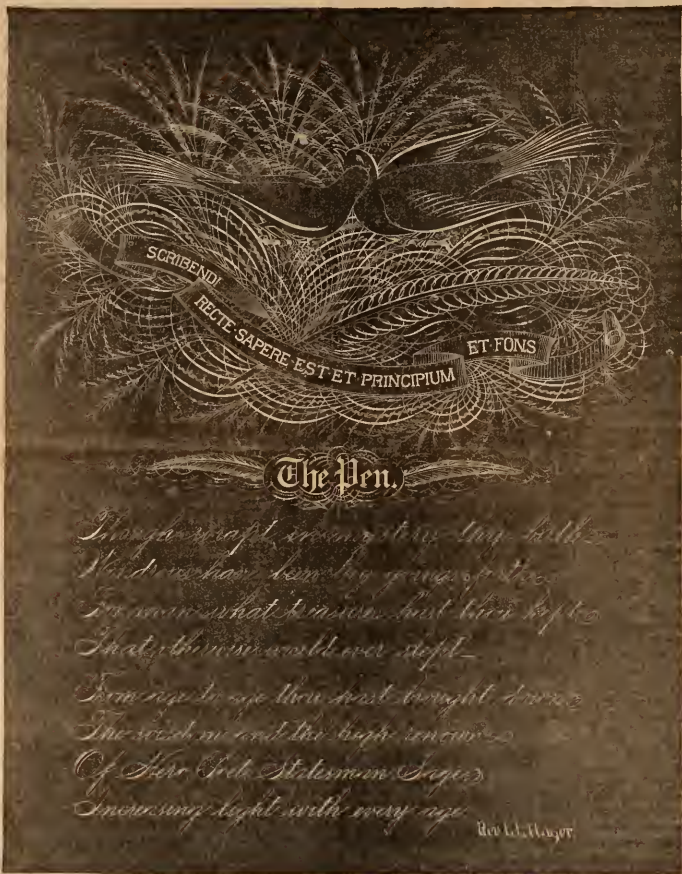 SCRIBENDI
RECTE·SAPERE·EST·ET·PRINCIPIUM
ET·FONS
The Pen.
Though wrapt in mystery thy birth
have been thy
For man what treasures hast thou kept
That otherwise would ever slept
From age to age thou hast brought down
The wisdom and the high renown
Of Hero Poet Statesman Sage
Increasing light with every age